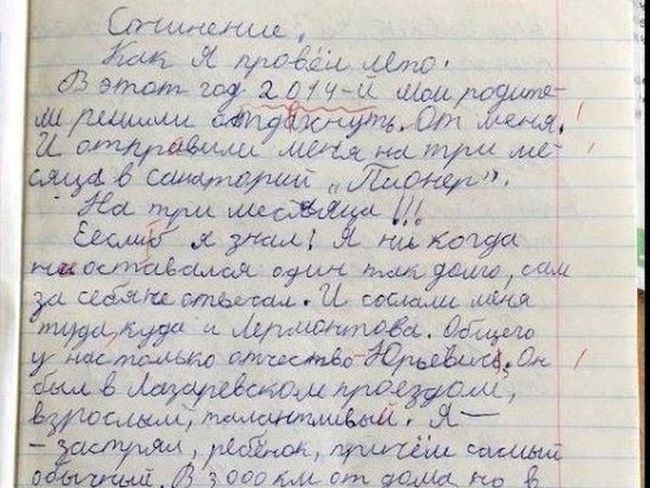 Сочинение.
Как я провёл лето.
В этот год 2014-й мои родите-
ли решили отдахнуть. От меня.
И отправили меня на три ме-
сяца в санаторий „Пионер".
На три месяца!!!
Еесли б я знал! Я ни когда
не оставался один так долго, сам
за себя не отвечал. И сослали меня
туда, куда и Лермонтова. Общего
у нас только отчество - Юрьевич. Он
был в Лазаревском проездом,
взрослый, талантливый. Я —
- застрял, ребёнок, причём самый
обычный. В 3000 км от дома но в